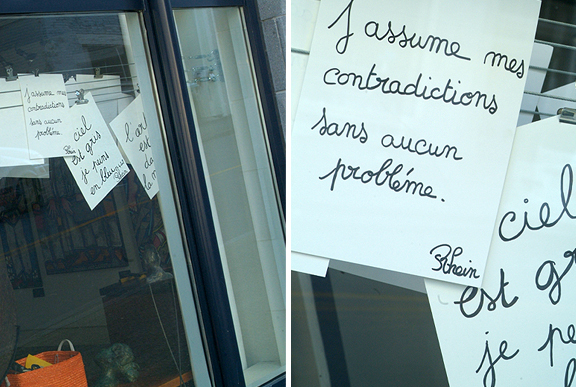 J'assume mes
contradictions
sans aucun
problème.
Rhein
ciel
est gris
je pens
en
l'art
est
da
la
J'assume mes
contradictions
sans aucun
probléme.
Rhein
ciel
est gr
je pe